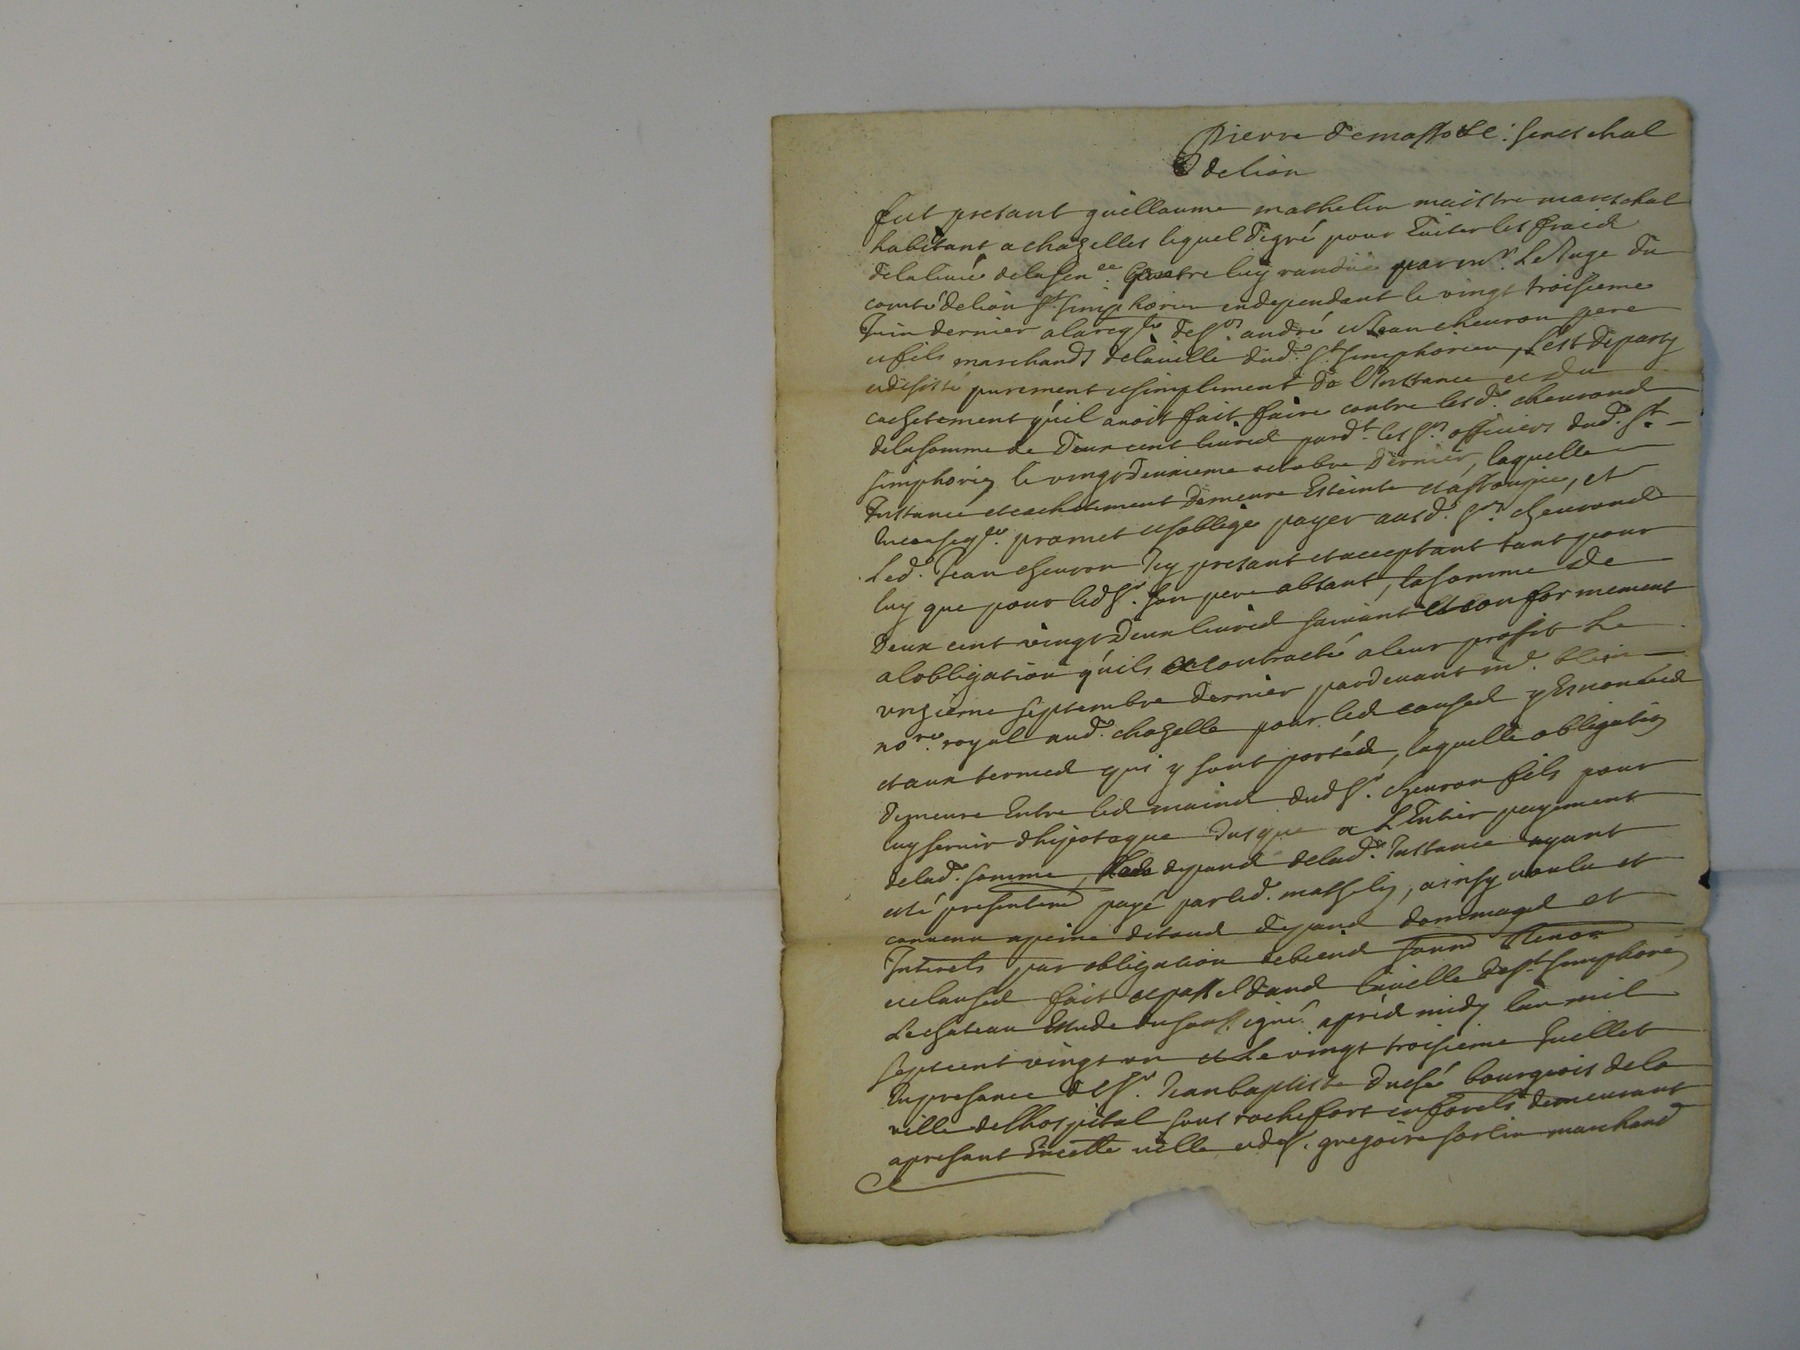 Pierre de masso &c. senechal
de lion
fut presant guillaume mathelin maistre mareschal
habitant a chazelles lequel degré pour Eviter les fraid
de la levée de la sen.ce contre luy randue par mr. Le Juge du
comté de lion St. simphorien independant le vingt troisieme
Juin dernier a la reqte. de srs. andré et Jean cheuron pere
et fils marchands de la uille dud. St. simphorien, s'est deparly
et desisté purement et simplement de l'Instance et du
cachetement qu'il auoit fait faire contre lesd. cheurond
de la somme de deux cent liured pardt. les srs. officiers dud. St.
simphorien le vingt deuxieme octobre dernier, laquelle
Instance et cachetement demeure Esteinte et assoupie, et
In conseqce. promet et s'oblige payer ausd. srs. cheurond
Led. Jean cheuron Icy presant et acceptant tant pour
luy que pour led sr. son pere absant, la somme de
deux cent vingt deux liured suiuant et conformement
a l'obligation qu'ils contracté a leur profit Le
vnzieme septembre dernier pardeuant me. blein
nore. royal aud. chazelle pour led caused y Enoncéed
et aux termed qui y sont portéd, laquelle obligation
demeure Entre led maind dud sr. cheuron fils pour
luy seruir d'hipotaque Jusque a L'Entier payement
de lad. somme, depand de lad. Instance ayant
esté presentemt payé par led. mathelin, ainsy voulu et
conuenu a peine de toud depand dommaged et
Interets par obligation de biend soumd Renond
et claused fait et passé dand la uille de St. simphorien
Le chateau Estude du soussigné apréd midy l'an mil
sept cent vingt un et Le vingt troisieme Juillet
In presance de sr. Jean baptiste duché bourgeois de la
ville de l'hospital sous rochefort en forets demeurant
a presant En cette uille et de sr. gregoire sorlin marchand